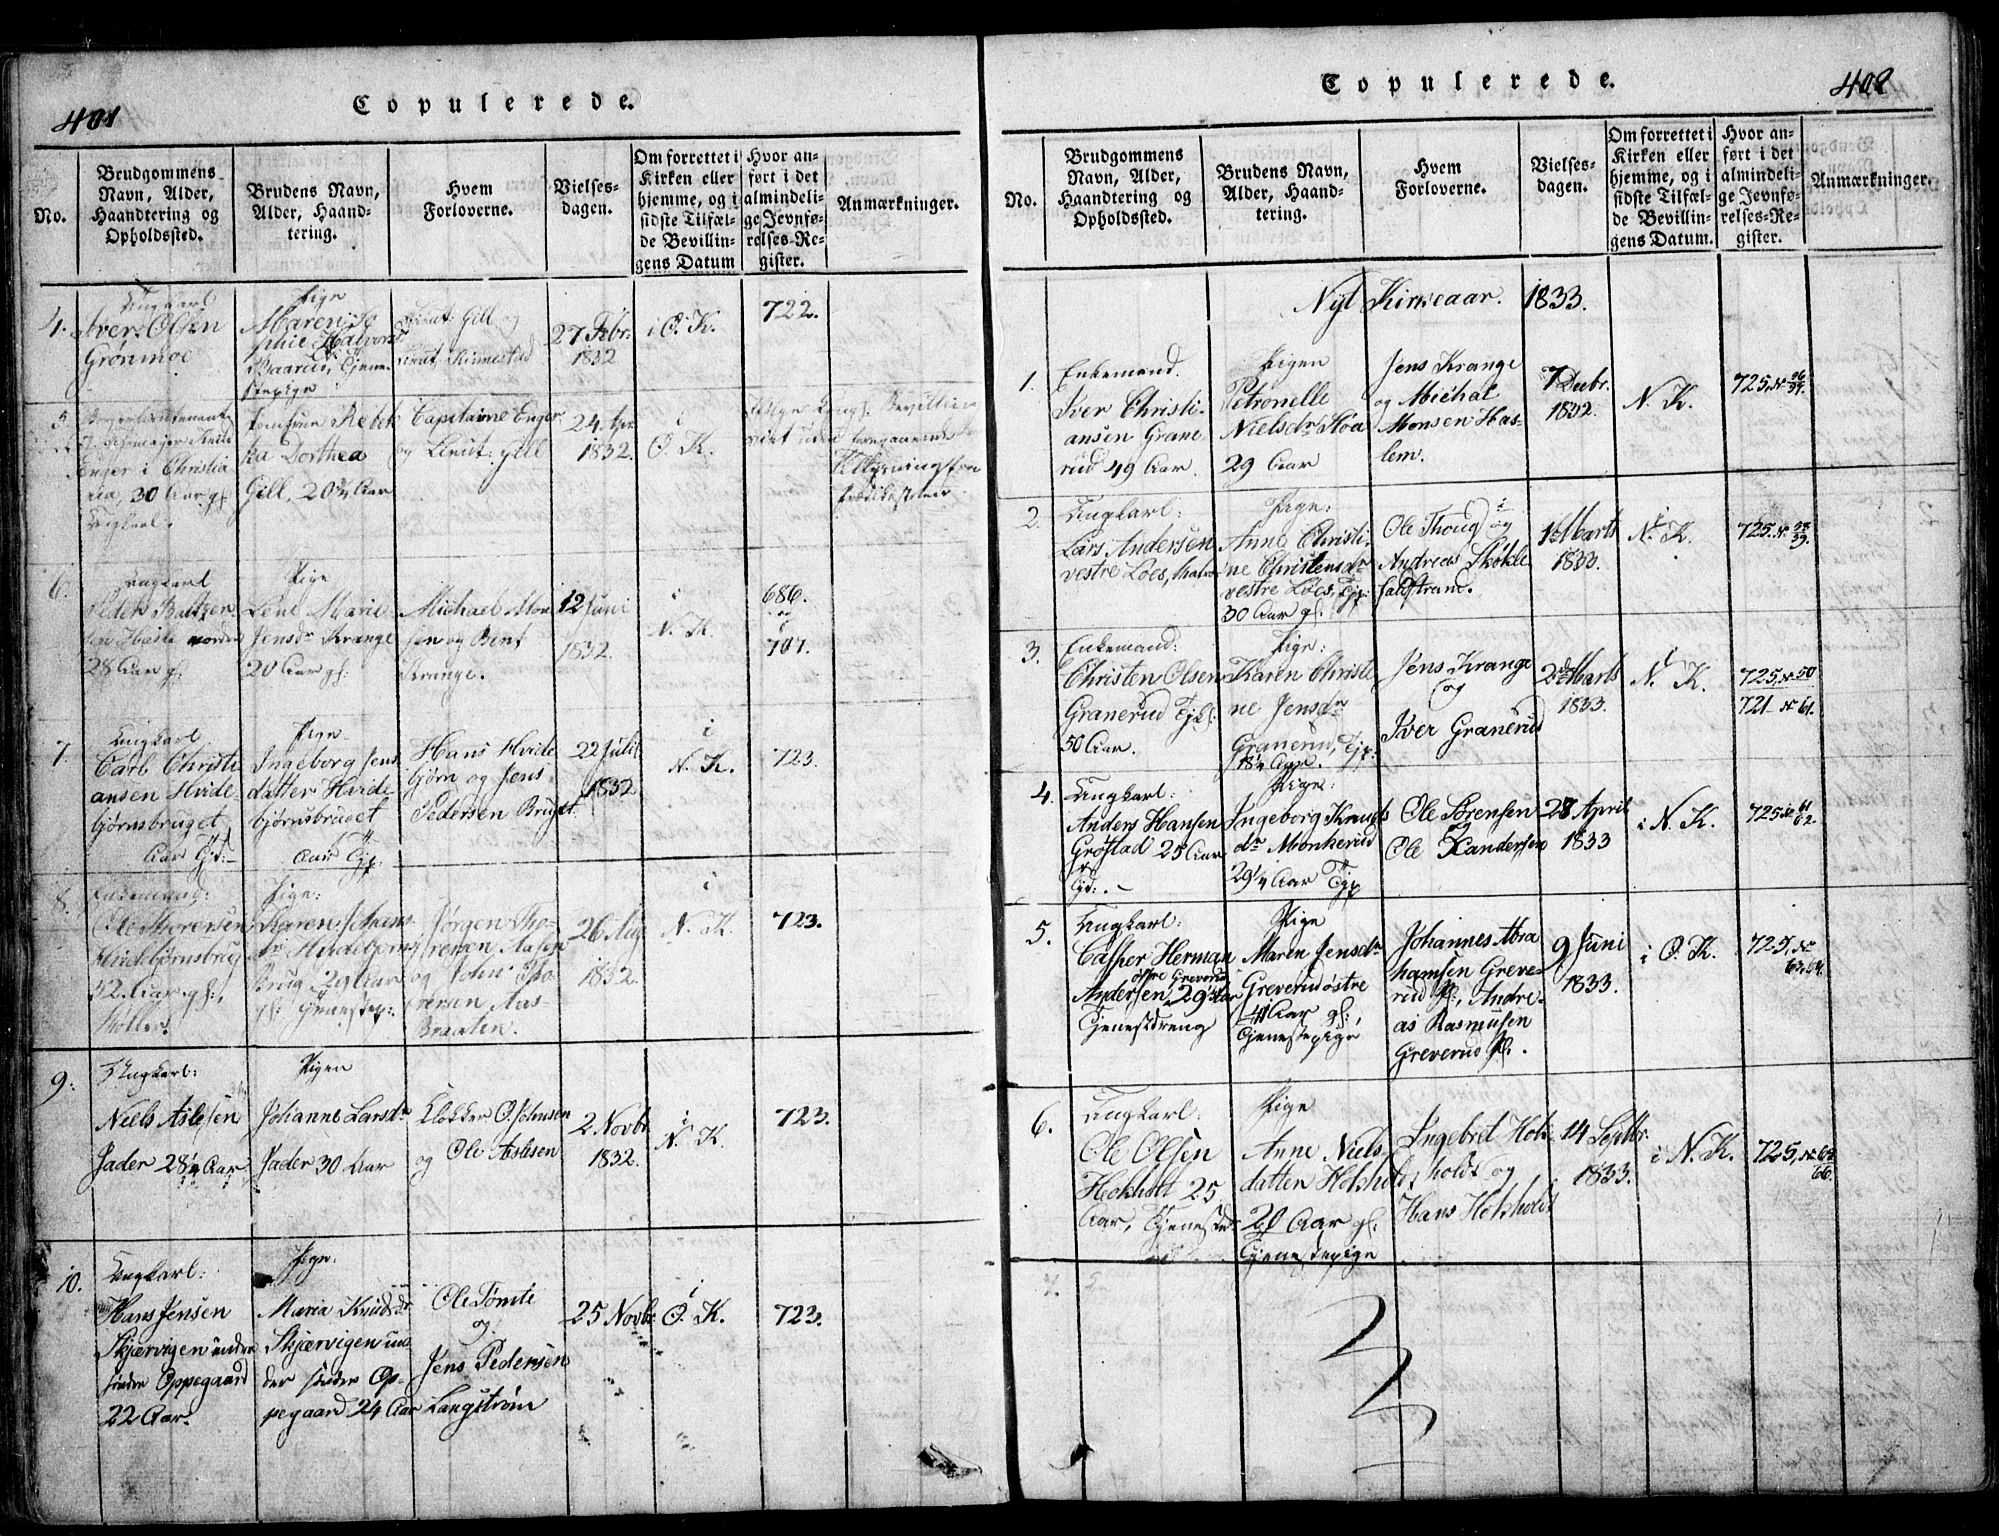 401
Copulerede.
No.
Brudgommens
Navn, Alder,
Haandtering og
Opholdssted.
Brudens Navn,
Alder, Haand-
tering.
Hvem
Forloverne.
Vielses-
dagen.
Om forrettet i
Kirken eller
hjemme, og i
sidste Tilfæl-
de Bevillin-
gens Datum
Hvor an-
ført i det
almindeli-
ge Jevnfø-
relses-Re-
gister.
Anmærkninger.
4.
Ungkarl
Iver Olsen
Grønmoe
Pige
Maren So
phie Halvorsd
Baarud, Tjene-
stepige
Lieut: Gill og
Lieut.
27 Febr.
1832
i O. K.
722.
5.
Enger i Christia
nia, 30 Aar gl.
Ungkarl.
Jomfrue Rebek
ka Dorthea
Gill, 20¾ Aar
Capitaine Enger
og Lieut: Gill
24 Apr.
1832.
i
O. K.
6.
Ungkarl
Peder Baltzer
28 Aar gl.
Pige
Lene Marie
Jensdr Krange
20 Aar gl:
Michael Mon
sen og Bent
Krange.
12 Juni
1832.
i
N. K.
686.
og
i
707.
7.
Ungkarl
Carl Christi
ansen Hvide-
bjørnsbruget
Aar Tjd:
Pige
Ingeborg Jens
datter Hvide-
bjørnsbruget
Aar Tjp:
Hans Hvide
bjørn og Jens
Pedersen Bruget.
22 Juli
1832
i
N. K.
723.
8.
Enkemand:
Ole Thoresen
Hvidebjørnsbrug
52 Aar gl.,
Pige:
Karen Johans
dr Hvidebjørns
Brug 29 Aar
gl: Tjenestep:
Jørgen Tho-
resen Aasen
og John Tho
resen Aas-
Braaten.
26 Aug
1832.
i
N. K.
723.
9:
Ungkarl:
Niels Aslesen
Jader 28¼ Aar
Pigen
Johanne Larsdr
Jader 30 Aar
Klokker O. Johnsen
og Ole Aslesen
2 Novbr
1832.
i
N. K.
723.
10.
Ungkarl:
Hans Jensen
Skjærvigen under
søndre Oppegaard
22 Aar.
Pige:
Maria Knudsdr
Skjærvigen un
der søndre Op-
pegaard 24 Aar
Ole Tømte
og
Jens Pedersen
Langstrøm
25 Novbr.
i
O. K.
723.
Copulerede.
402
No.
Brudgommens
Navn, Alder,
Haandtering og
Opholdssted.
Brudens Navn,
Alder, Haand-
tering.
Hvem
Forloverne.
Vielses-
dagen.
Om forrettet i
Kirken eller
hjemme, og i
sidste Tilfæl-
de Bevillin-
gens Datum.
Hvor an-
ført i det
almindeli-
ge Jevnfø-
relses-Re-
gister.
Anmærkninger.
Nyt Kirkeaar. 1833.
1.
Enkemand.
Iver Christi-
ansen Grane
rud 49 Aar.
Pigen
Petronelle
Nielsdr Høa
29 Aar
Jens Krange
og Michal
Monsen Has-
lem.
7 Decbr.
1832.
N. K.
725,
2.
Ungkarl:
Lars Andersen
vestre Loes,
Pige:
Anne Christi-
ne Christensdr
vestre Loes, Tjp:
30 Aar gl.
Ole Thoug og
Andreas Skøkle
faldstrand.
1 Marts
1833.
i
N. K.
725
3.
Enkemand:
Christen Olsen
Granerud Tjk:
50 Aar.
Pige:
Karen Christi
ne Jensdr
Granerud, Tjp:
18¼ Aar.
Jens Krange
og
Iver Granerud
2 Marts
1833.
i
N. K.
725, № 50
721 № 61.
4.
Ungkarl:
Anders Hansen
Grøstad 25 Aar
Tjd:
Pige:
Ingeborg Knuds
dr Monkerud
29¼ Aar Tjp
Ole Sørensen
og
Ole Randersen
28 April
1833
i N. K.
725 № 61
62.
5.
Ungkarl:
Casper Herman
østre Greverud
Andersen 29 Aar
Tjenestdreng
Pige
Maren Jensdr
Greverud østre
41 Aar gl:,
Tjenestepige
Johannes Abra
hamsen Greve-
rud og Andre-
as Rasmusen
Greverud
9 Juni
1833.
i O. K.
725, №
63, 64.
6.
Ungkarl:
Ole Olsen
Hokholt 25
Aar, Tjenestedr
Pige
Anne Niels
datter Hokholt
21 Aar gl:
Tjenestepige
Ingebret Hok-
holdt og
Hans Hokholdt
14 Septbr.
1833.
i N. K.
725, № 65
66.
7.